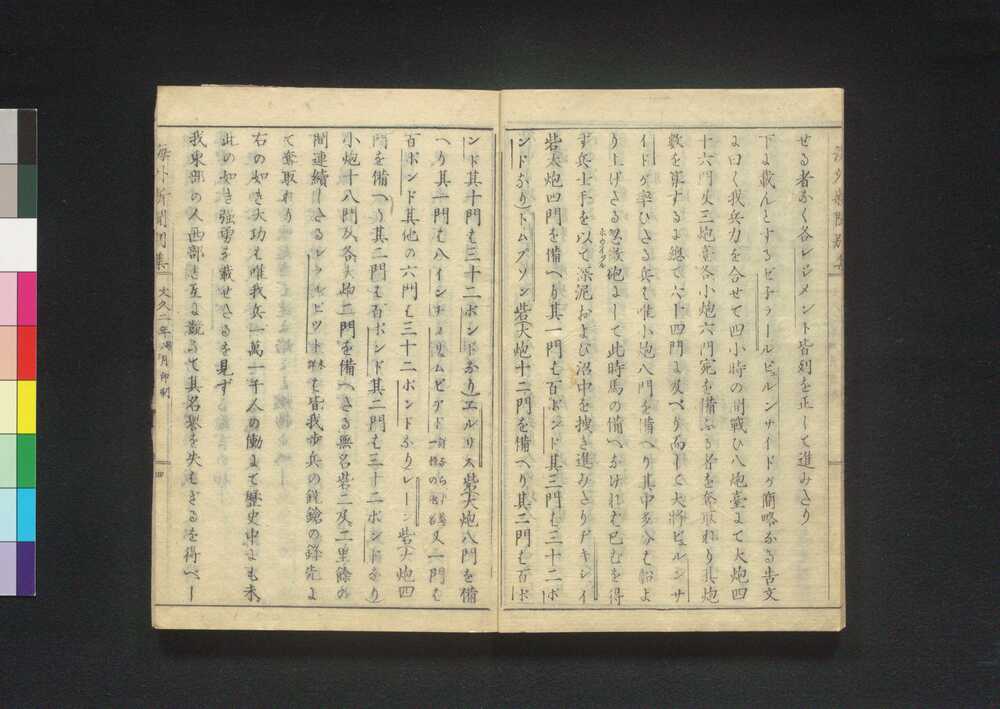 せる者なく各レジメント皆列を正して進みたり
下に載んとするゼネラールビルンサイドが簡略なる告文
に曰く我兵力を合せて四小時の間戦ひ八炮臺にて大炮四
十六門又三炮臺各小炮六門宛を備ふる者を奪取れり其炮
数を算するに總て六十四門に及べり而して大將ビルンサ
イドが率ひたる兵も唯小炮八門を備へり其中多分も船よ
り上げたる忽微砲にして此時馬の備へなければ已むを得
ホウイツル
ず兵士手を以て深泥および沼中を拽き進みたり
砦大炮四門を備へり其一門も百ポンド其三門も三十二ポ
ンドなり)トムプソン砦(大炮十二門を備へり其二門も百ポ
ンド其十門も三十二ポンドなり)エルリス砦(大炮八門を備
へり其一門も八インチ 又一門も
百ポンド其他の六門も三十二ポンドなり)レーン砦(大炮四
門を備へり其二門も百ポンド其二門も三十二ポンドなり)
小炮十八門及各大炮二門を備へたる無名砦二及二里餘の
間連續したる も皆我歩兵の銃鎗の鋒先に
て奪取れり
右の如き大功も唯我兵一萬一千人の働にて歴史中にも未
此の如き強勇を載せたるを見ず
我東部の人西部と互に競ふて其名譽を失もざるを得べし
海外新聞別集
文久二年 月印刷
四